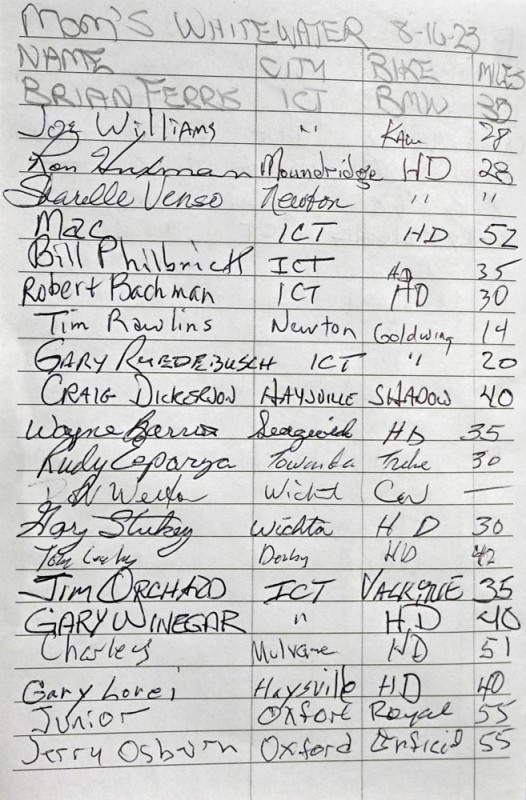 Mom's WHITEWATER 8-16-23
NAME CITY BIKE MILES
BRIAN FERRIS ICT BMW 30
Joe Williams " Kaw 28
Ron Moundridge HD 28
Sharelle Venso Newton " "
Mac ICT HD 52
Bill Philbrick ICT HD 35
Robert Bachman ICT HD 30
Tim Rawlins Newton Goldwing 14
GARY RUEDEBUSCH ICT " 20
CRAIG DICKERSON HAYSVILLE SHADOW 40
Wayne Sedgwick HD 35
Rudy Esparza Towanda Trike 30
Wichit —
Gary Stukey Wichta HD 30
Tom Derby HD 42
JIM ORCHARD ICT VALKYRIE 35
GARY WINEGAR " H.D 40
Charley Mulvane HD 51
Gary Lorei Haysville HD 40
JUNIOR OXford Royal 55
Jerry Osburn Oxford Enfield 55